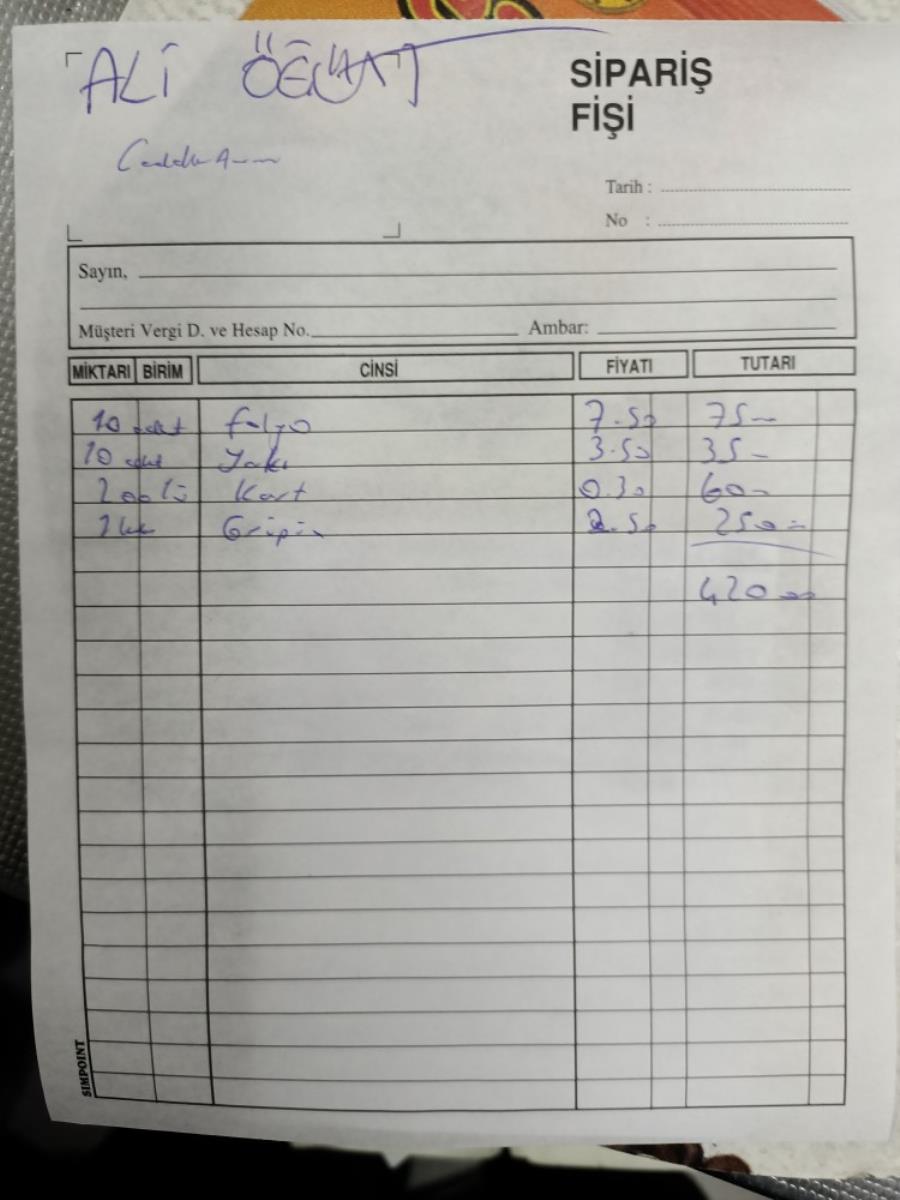 ALİ
SİPARİŞ
FİŞİ
Tarih :
No :
Sayın,
Müşteri Vergi D. ve Hesap No. Ambar:
MİKTARI BİRİM CİNSİ FİYATI TUTARI
10 adet folyo 7.50 75-
10 adet Yakı 3.50 35-
200 lü Kart 0.30 60-
Gripin 2.50 250-
420
SIMPOINT